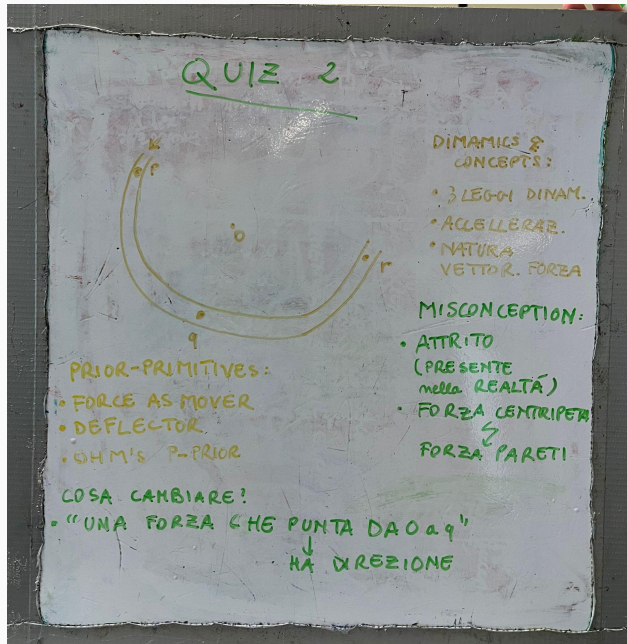 QUIZ 2
p
O
r
q
DINAMICS &
CONCEPTS:
• 3 LEGGI DINAM.
• ACCELLERAZ.
• NATURA
VETTOR. FORZA
MISCONCEPTION:
• ATTRITO
(PRESENTE
nella REALTÁ)
• FORZA CENTRIPETA
FORZA PARETI
PRIOR-PRIMITIVES:
• FORCE AS MOVER
• DEFLECTOR
• OHM'S P-PRIOR
COSA CAMBIARE?
• "UNA FORZA CHE PUNTA DA O a q"
HA DIREZIONE